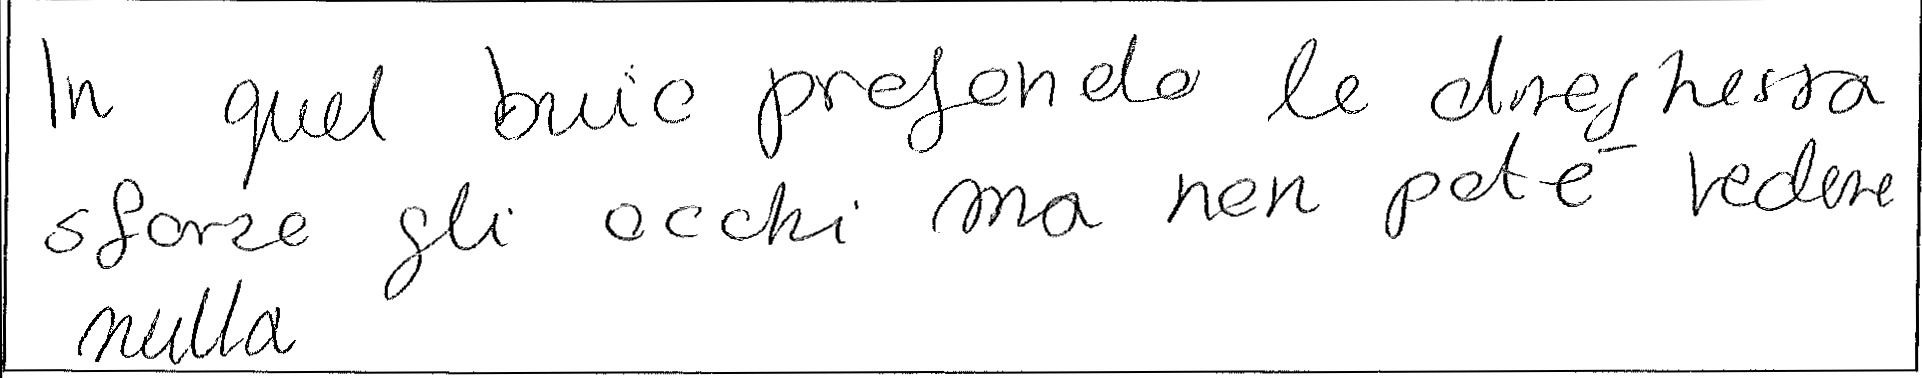 In quel buio profondo la draghessa
sforzo gli occhi ma non poté vedere
nulla